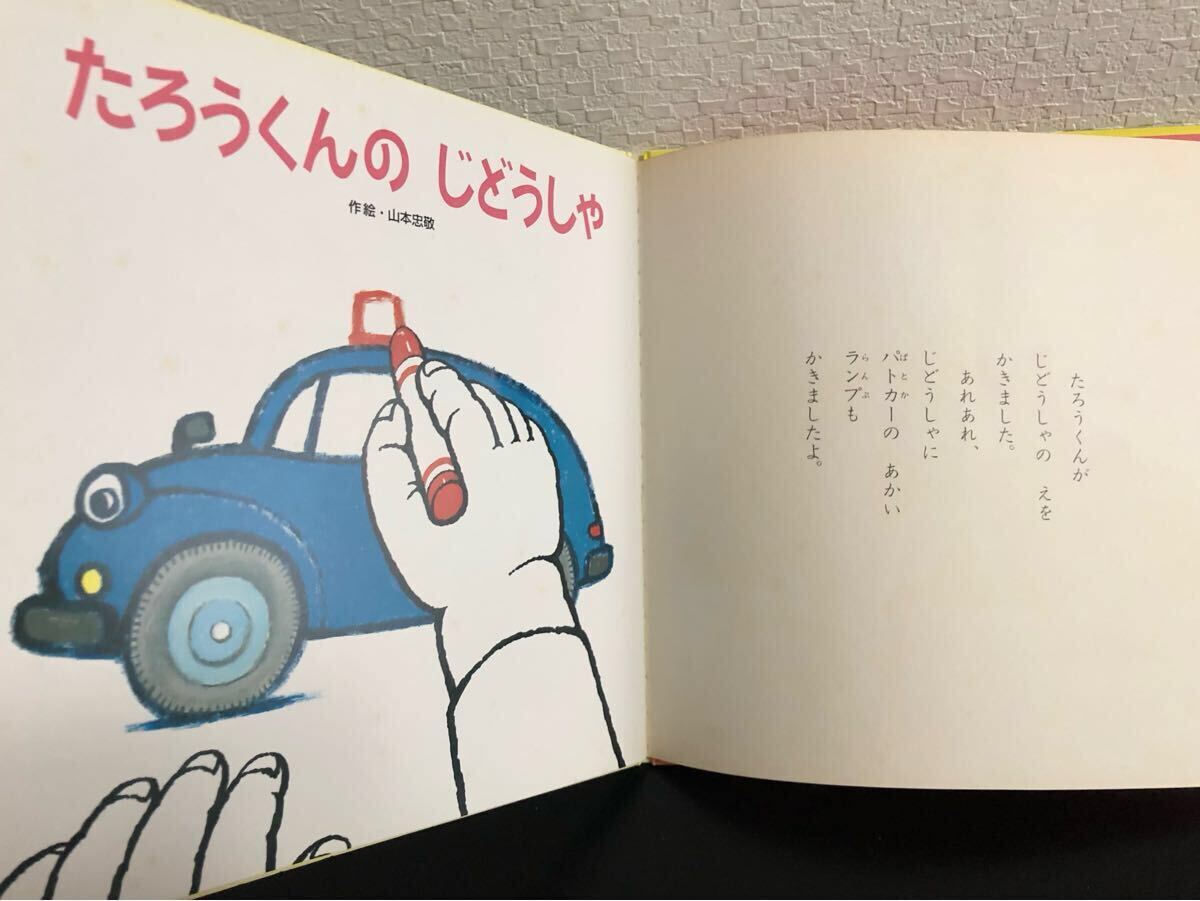 たろうくんの じどうしゃ
作絵・山本忠敬
たろうくんが
じどうしゃの えを
かきました。
あれあれ、
じどうしゃに
パトカーの あかい
ぱとか
ランプも
らんぷ
かきましたよ。